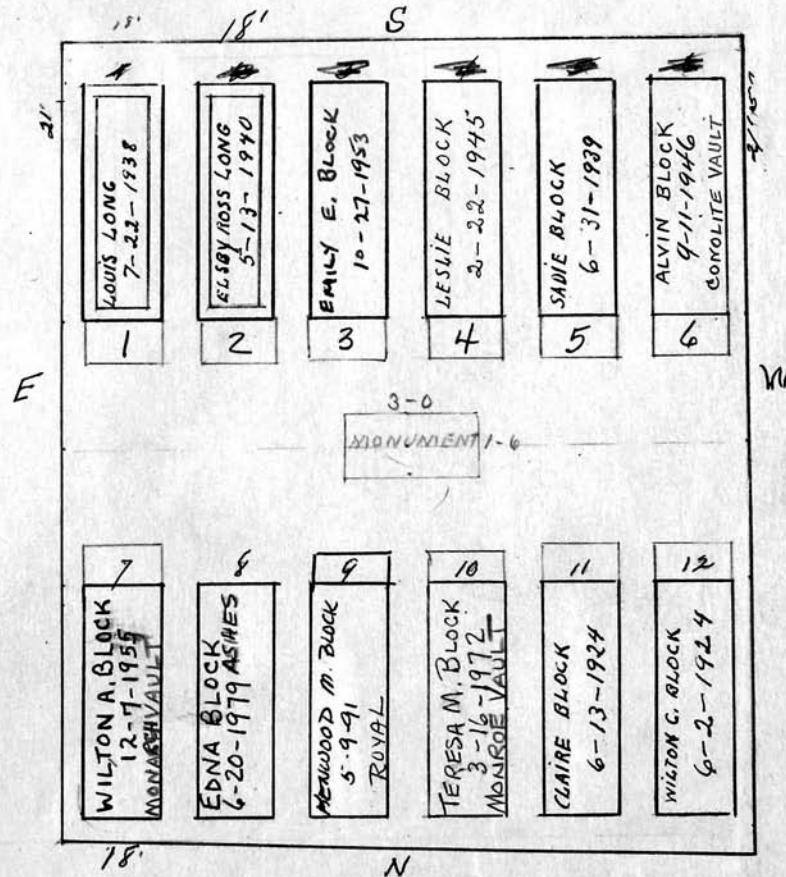 18'
18'
S
21'
LOUIS LONG
7-22-1938
1
ELSBY ROSS LONG
5-13-1940
2
EMILY E. BLOCK
10-27-1953
3
LESLIE BLOCK
2-22-1945
4
SADIE BLOCK
6-31-1939
5
ALVIN BLOCK
9-11-1946
CONOLITE VAULT
6
E
W
3-0
MONUMENT 1-6
7
WILTON A. BLOCK
12-7-1955
MONARCH VAULT
8
EDNA BLOCK
6-20-1979 ASHES
9
M. BLOCK
5-9-91
ROYAL
10
TERESA M. BLOCK
3-16-1972
MONROE VAULT
11
CLAIRE BLOCK
6-13-1924
12
WILTON C. BLOCK
6-2-1924
18'
N